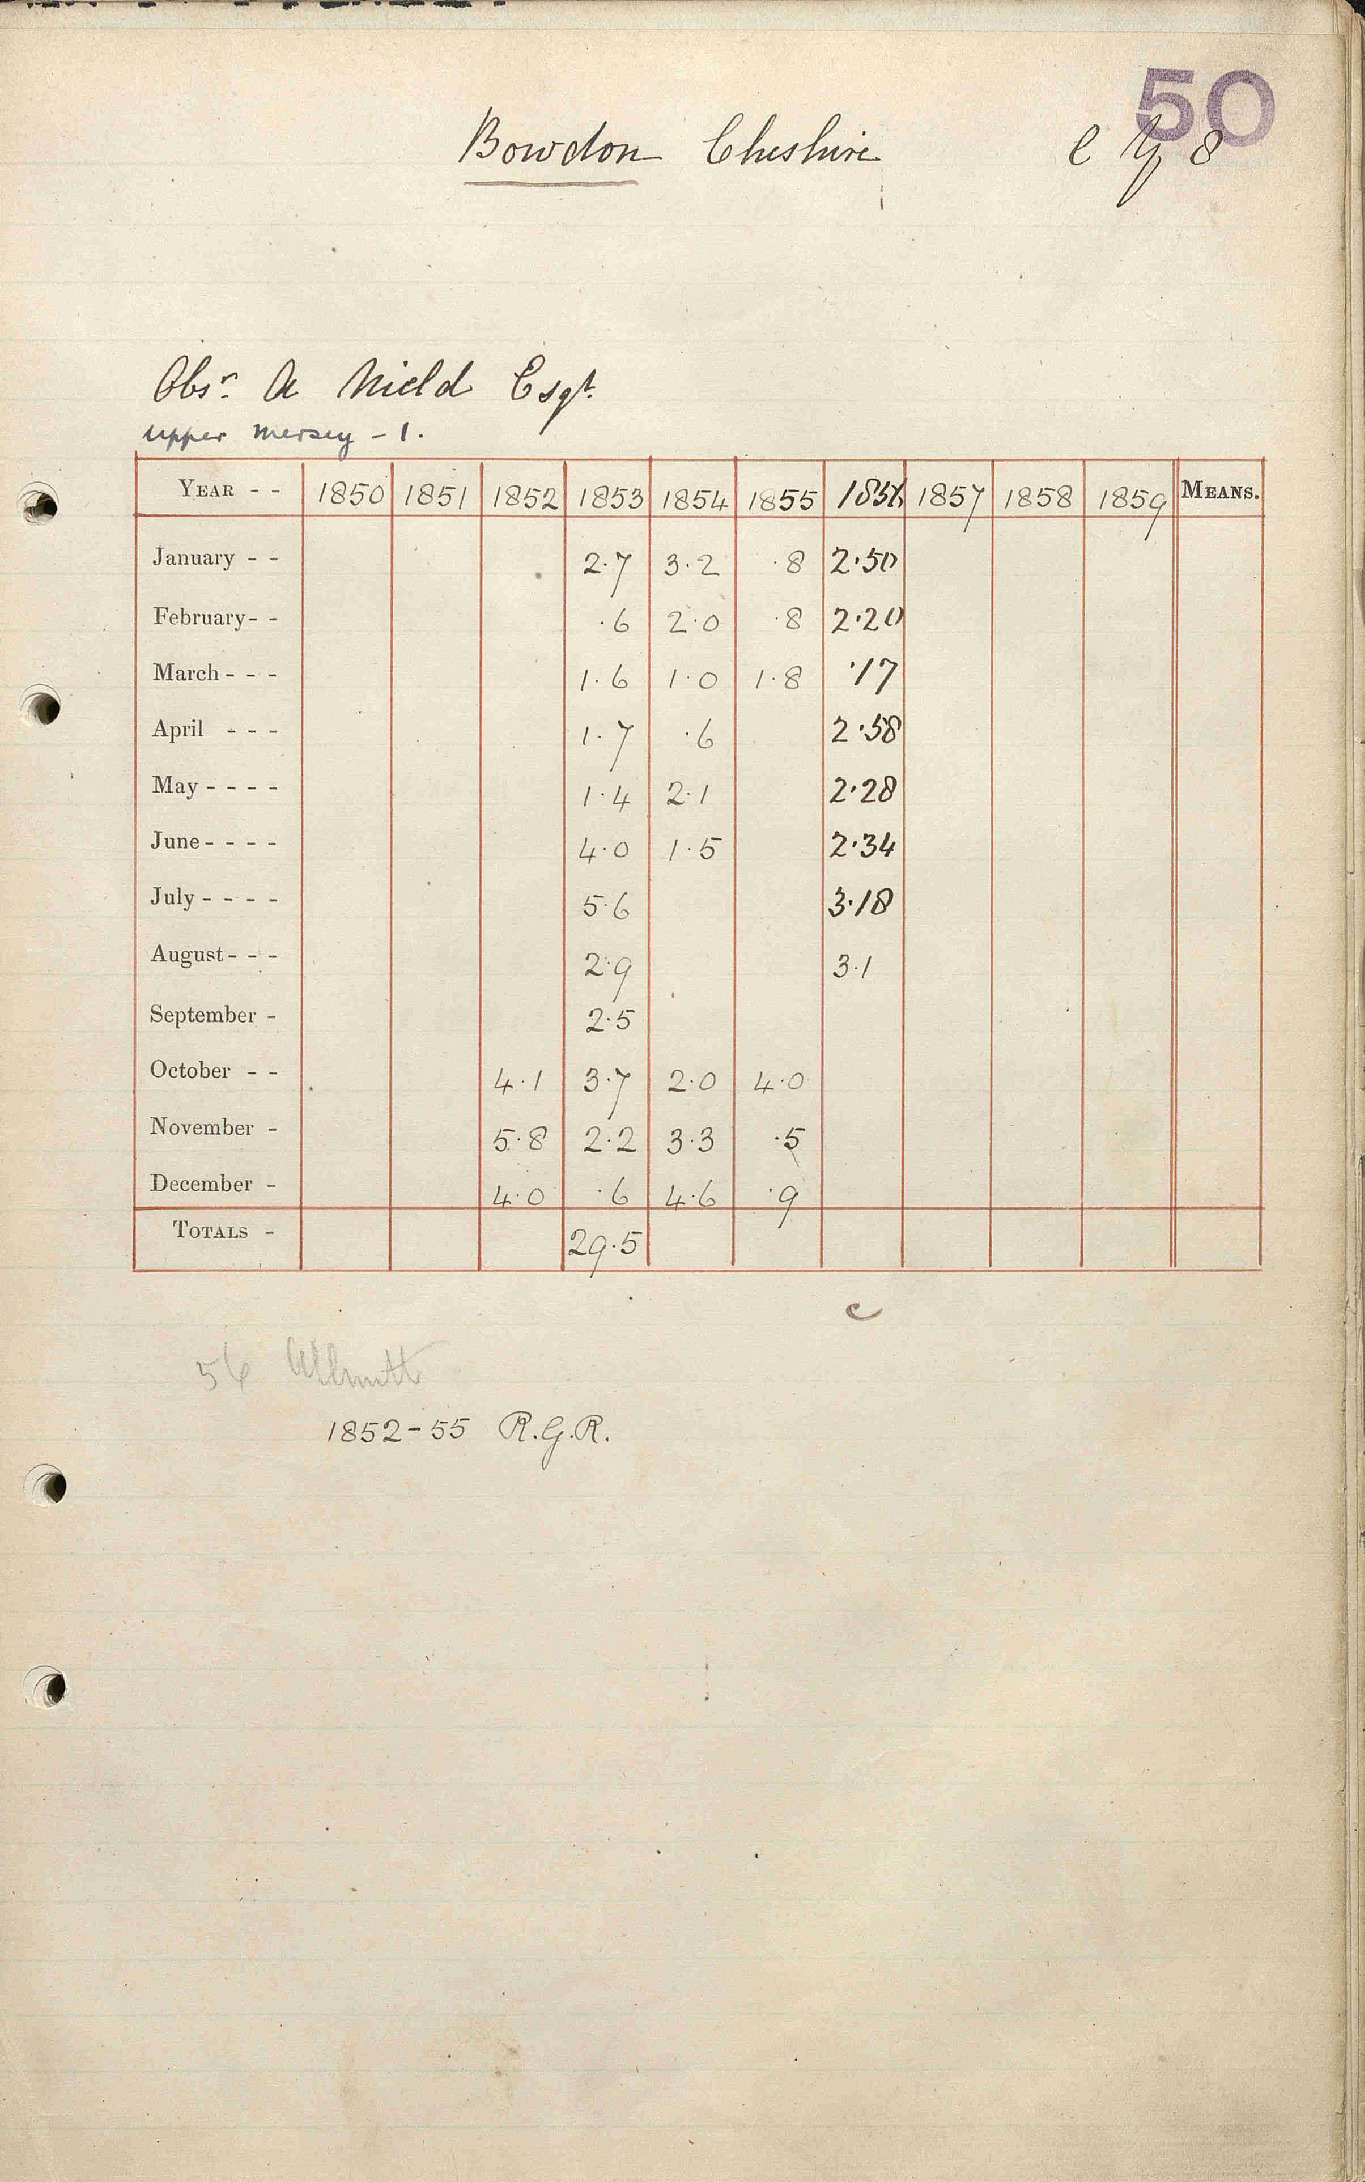 50
Bowdon Cheshire
Obsr. A Nield Esqr.
Upper Mersey - 1.
YEAR - - 1850 1851 1852 1853 1854 1855 1856 1857 1858 1859 MEANS.
January - - 2.7 3.2 .8 2.50
February- - .6 2.0 .8 2.20
March - - - 1.6 1.0 1.8 .17
April - - - 1.7 .6 2.58
May - - - - 1.4 2.1 2.28
June - - - - 4.0 1.5 2.34
July - - - - 5.6 3.18
August - - - 2.9 3.1
September - 2.5
October - - 4.1 3.7 2.0 4.0
November - 5.8 2.2 3.3 .5
December - 4.0 .6 4.6 .9
TOTALS - 29.5
c
56
1852-55 R.G.R.